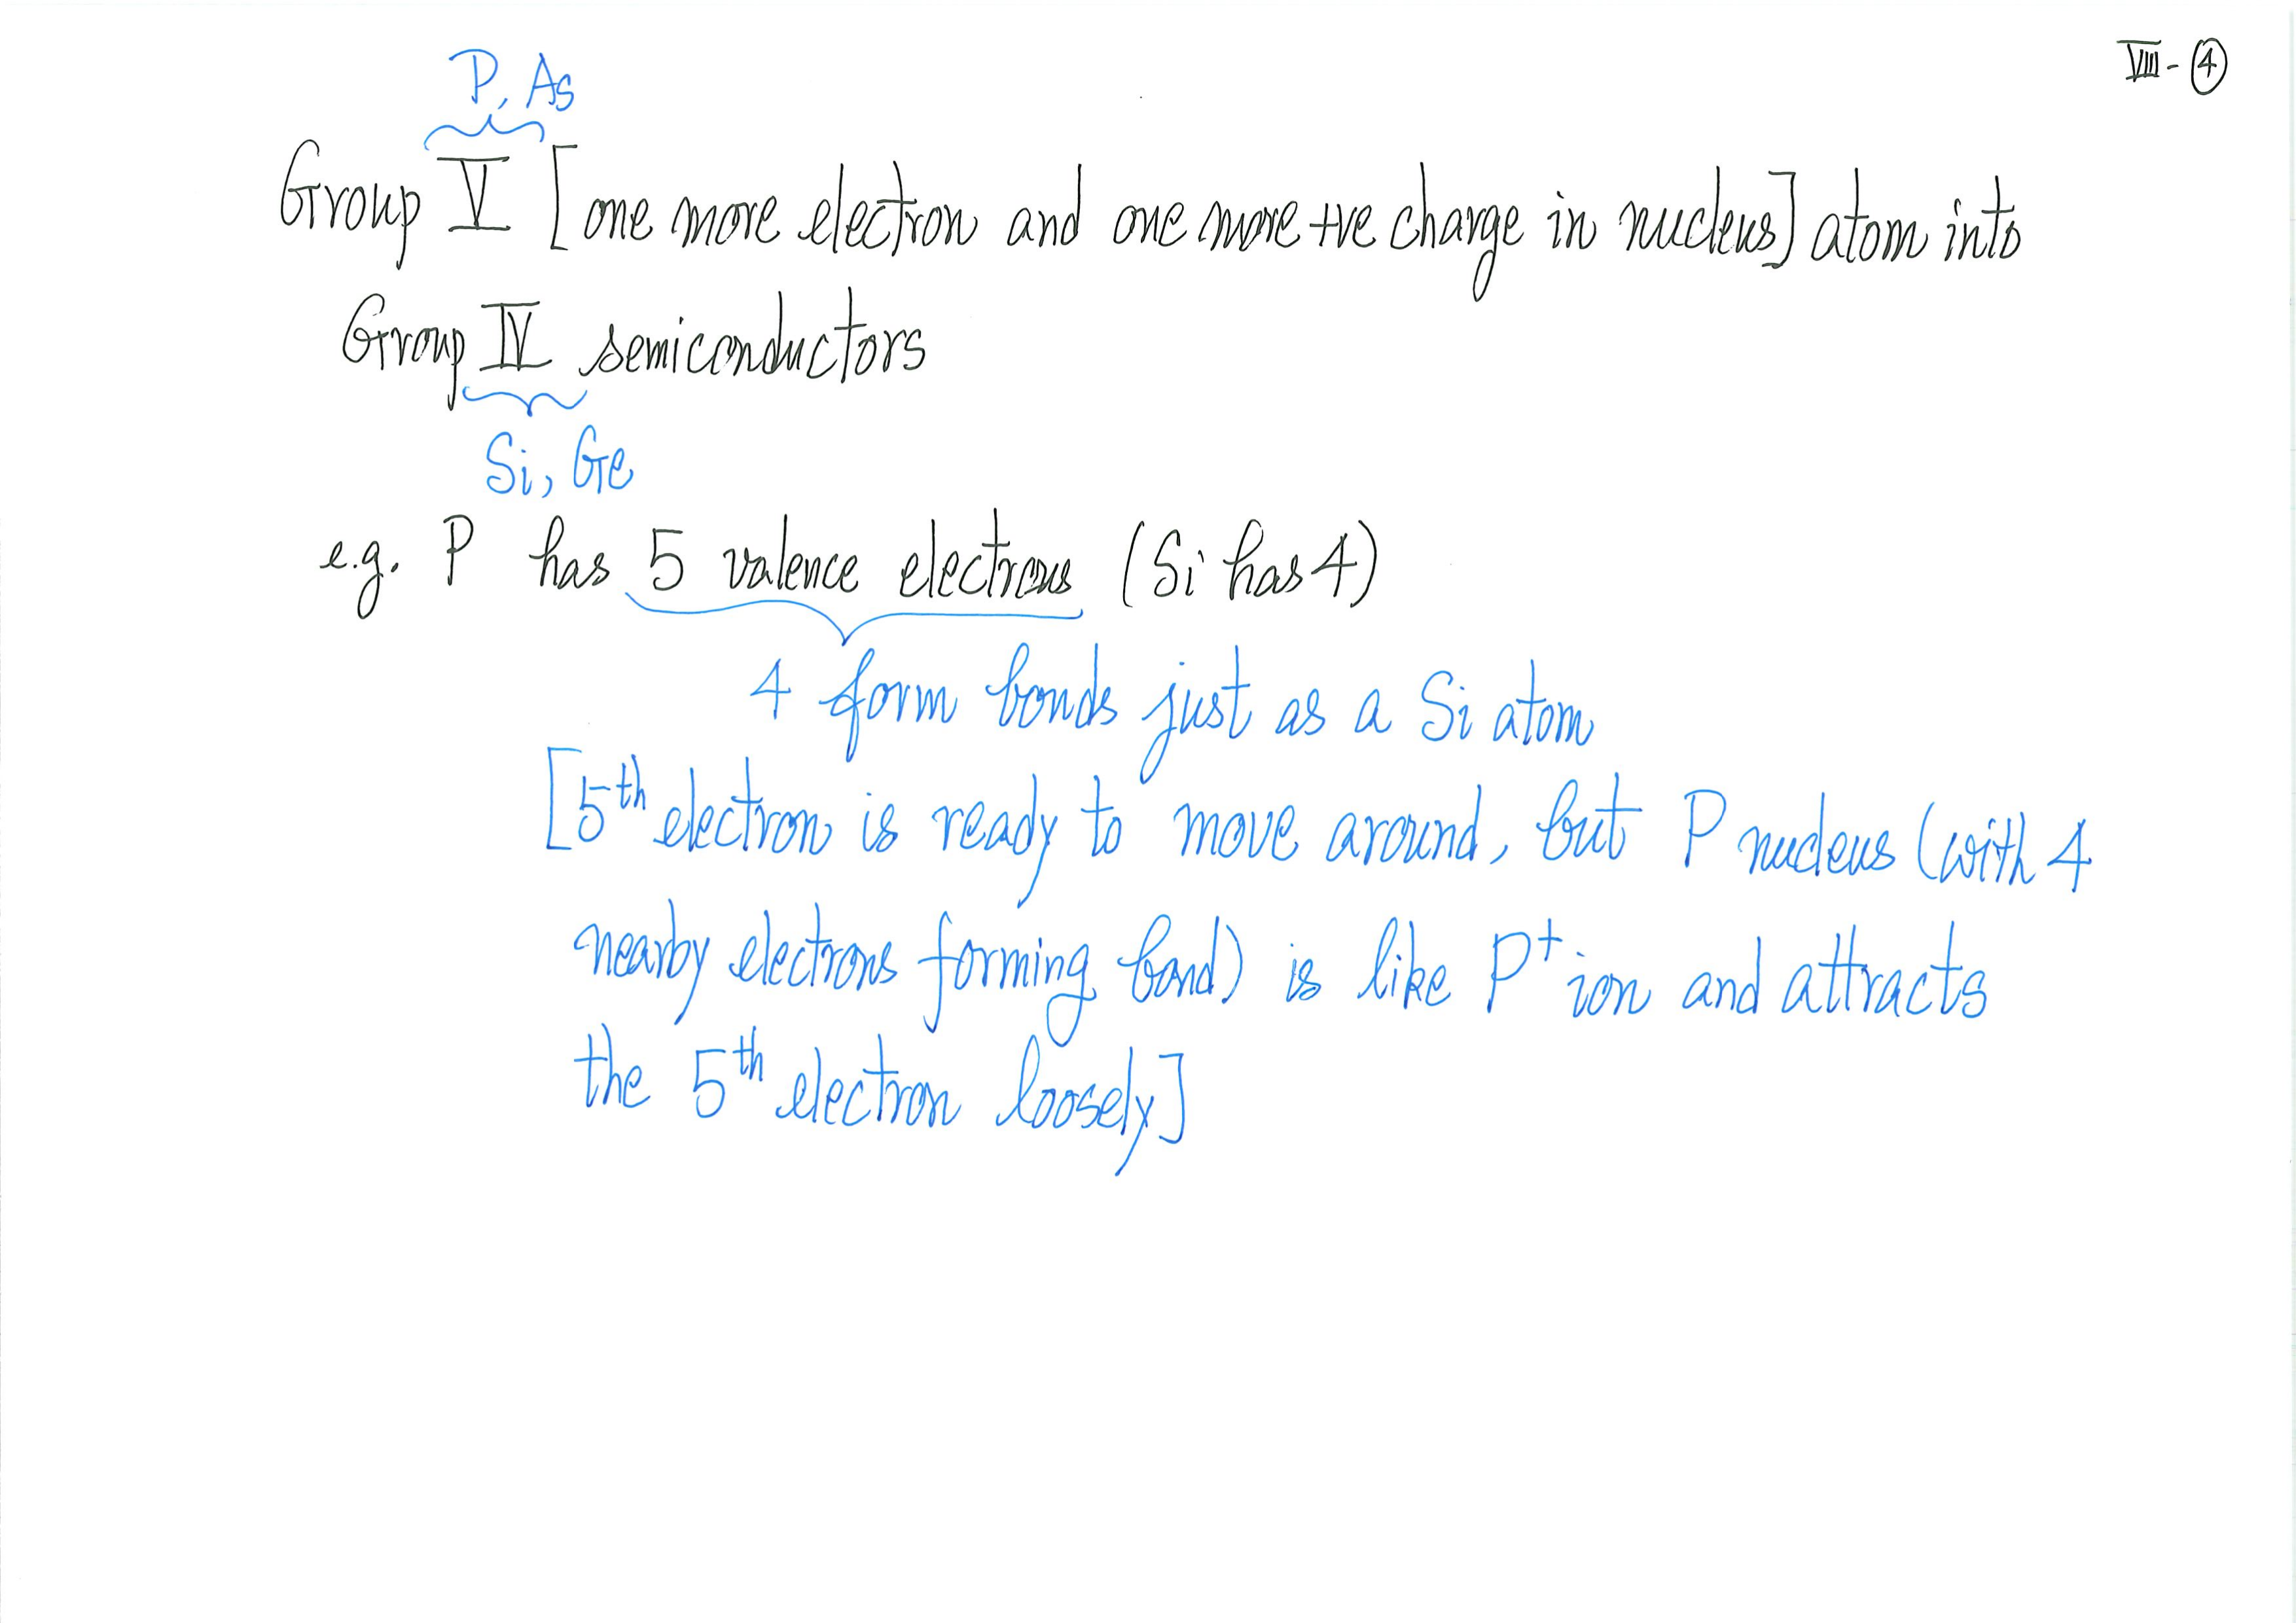 VIII - ④
P, As
Group V [one more electron and one more +ve charge in nucleus] atom into
Group IV semiconductors
Si, Ge
e.g. P has 5 valence electrons (Si has 4)
4 form bonds just as a Si atom
[5th electron is ready to move around, but P nucleus (with 4
nearby electrons forming bond) is like P⁺ ion and attracts
the 5th electron loosely]